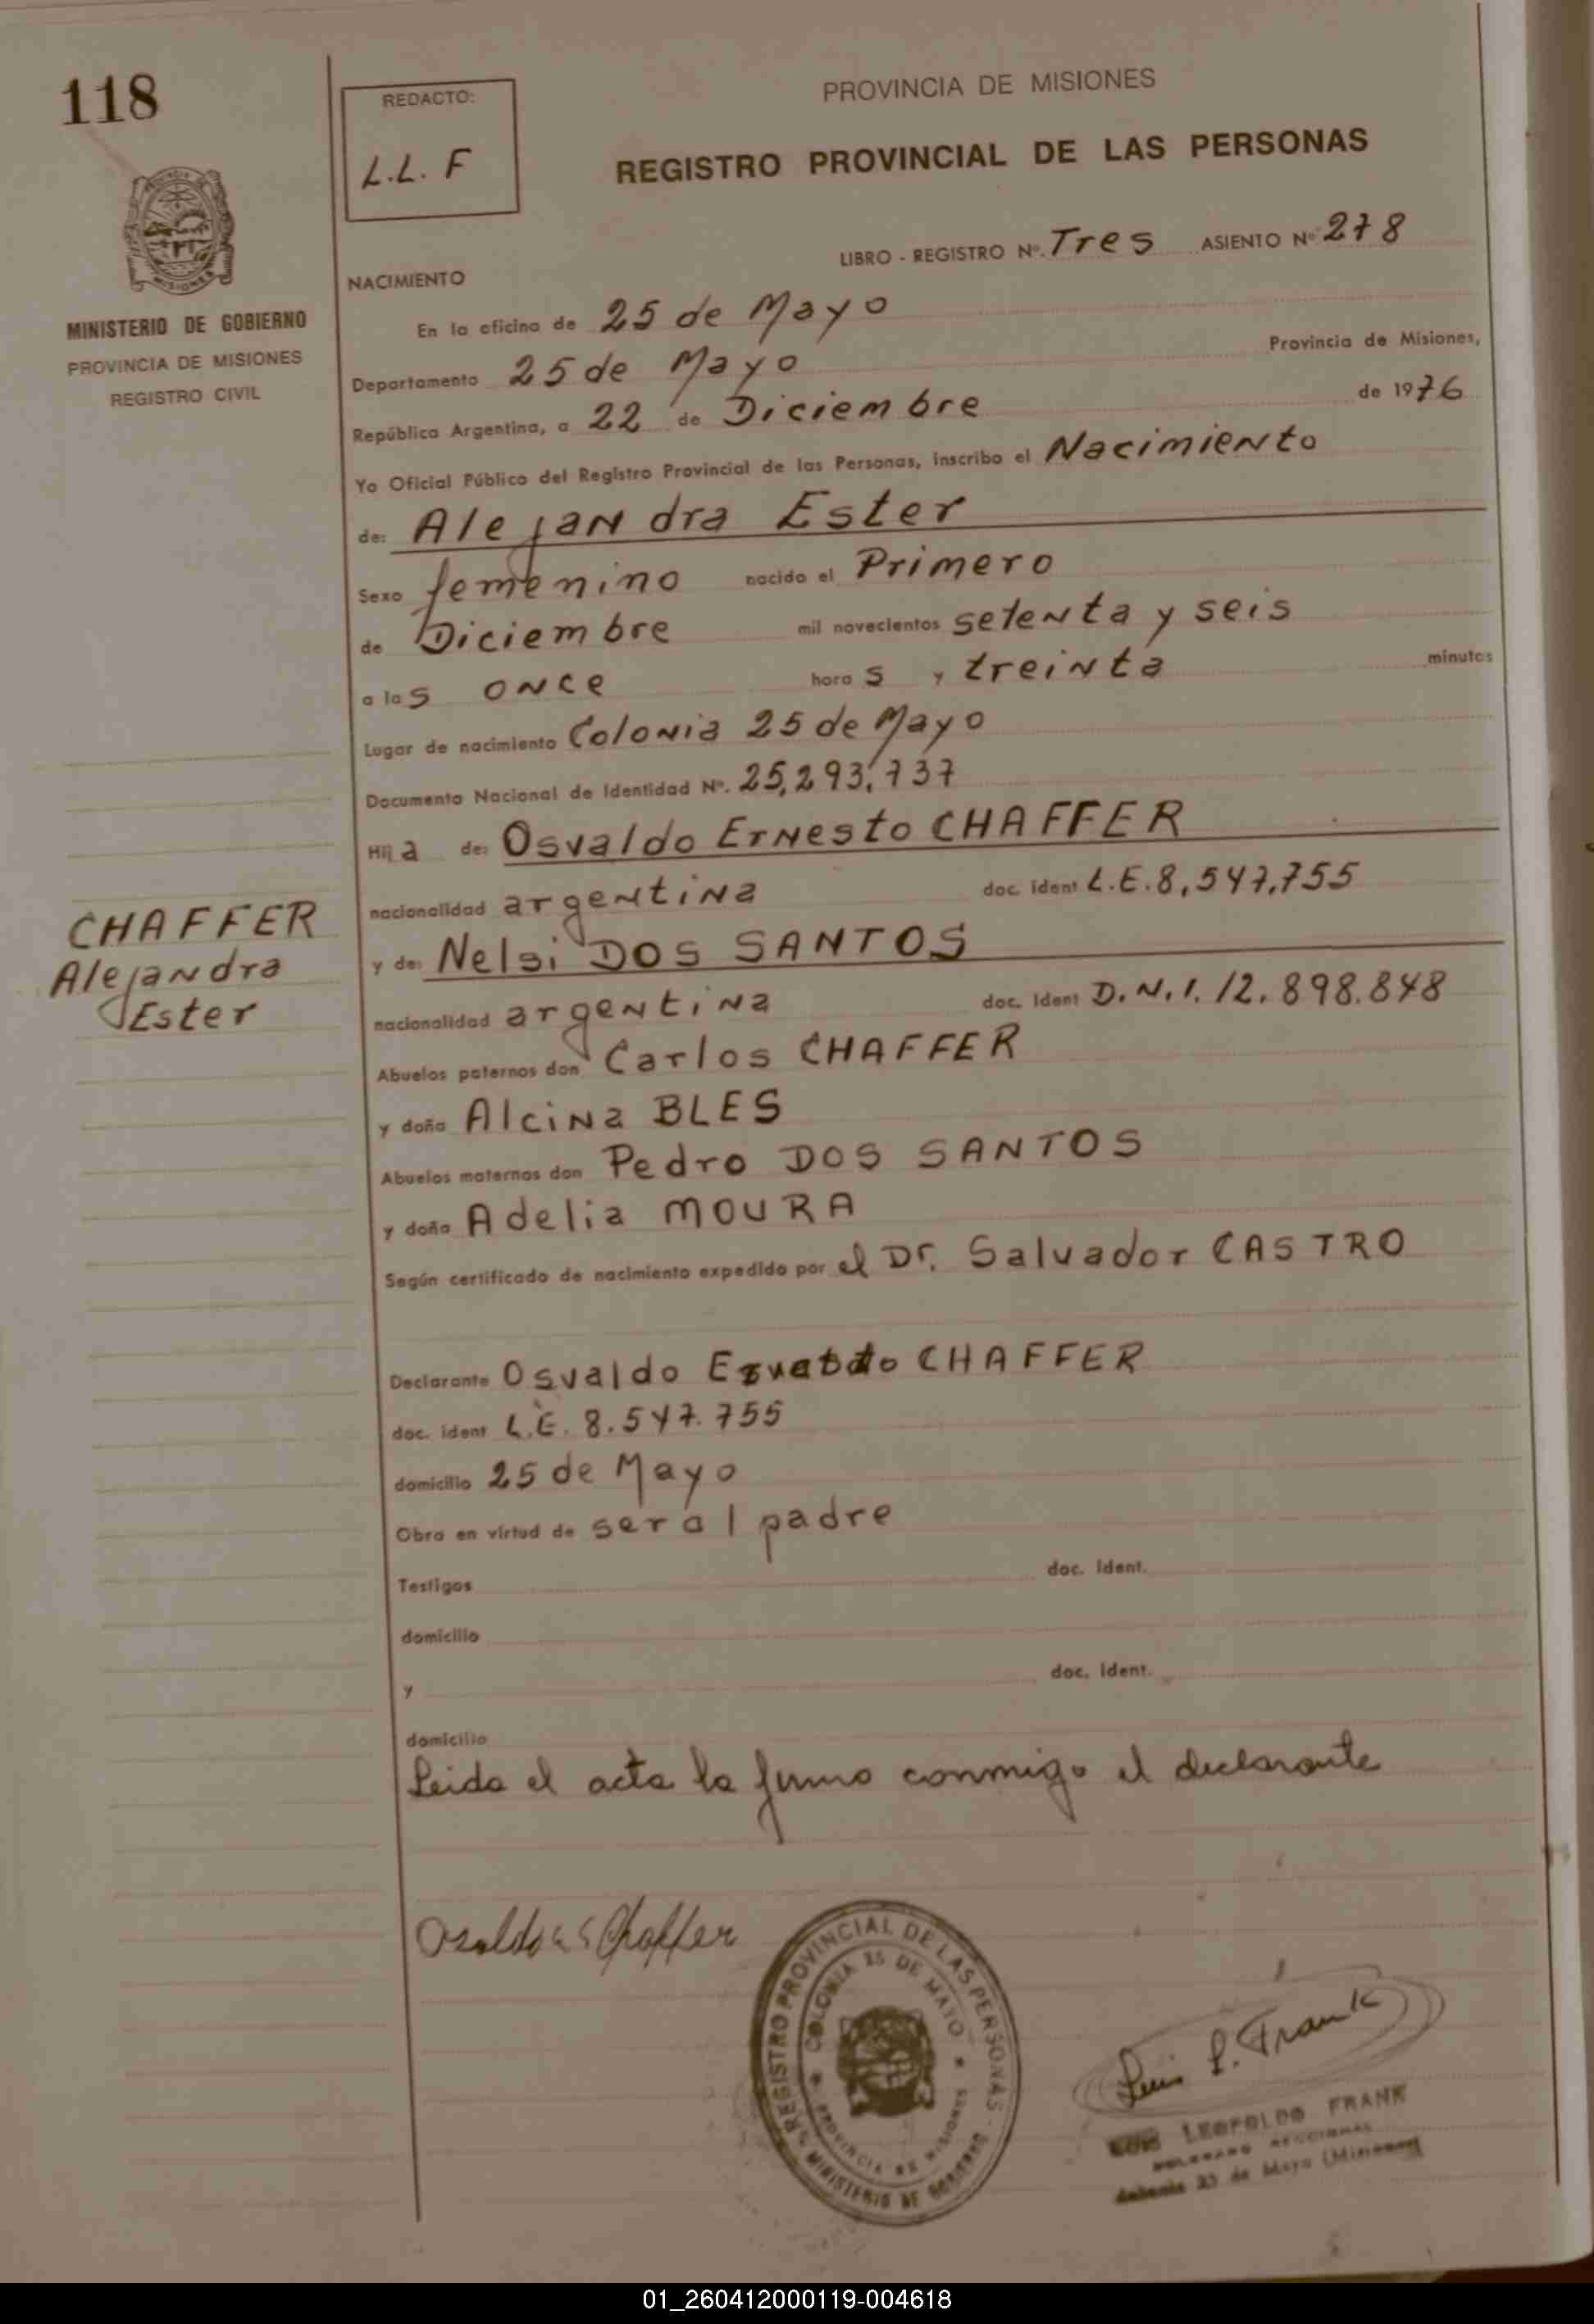 118
PROVINCIA DE MISIONES
REDACTO:
L.L. F
REGISTRO PROVINCIAL DE LAS PERSONAS
LIBRO - REGISTRO Nº. Tres ASIENTO Nº 278
NACIMIENTO
MINISTERIO DE GOBIERNO
PROVINCIA DE MISIONES
REGISTRO CIVIL
En la oficina de 25 de Mayo
Departamento 25 de Mayo Provincia de Misiones,
República Argentina, a 22 de Diciembre de 1976
Yo Oficial Público del Registro Provincial de las Personas, inscribo el Nacimiento
de: Alejandra Ester
Sexo femenino nacido el Primero
de Diciembre mil novecientos setenta y seis
a las once horas y treinta minutos
Lugar de nacimiento Colonia 25 de Mayo
Documento Nacional de Identidad Nº. 25,293,737
Hija de: Osvaldo Ernesto CHAFFER
nacionalidad argentina doc. ident L.E. 8,547,755
CHAFFER
Alejandra
Ester
y de: Nelsi DOS SANTOS
nacionalidad argentina doc. Ident D.N.I. 12.898.848
Abuelos paternos don Carlos CHAFFER
y doña Alcina BLES
Abuelos maternos don Pedro DOS SANTOS
y doña Adelia MOURA
Según certificado de nacimiento expedido por el Dr. Salvador CASTRO
Declarante Osvaldo CHAFFER
doc. ident L.E. 8.547.755
domicilio 25 de Mayo
Obra en virtud de ser al padre
Testigos doc. Ident.
domicilio
y doc. Ident.
domicilio
Leida el acta la firmo conmigo el declarante
Chaffer
REGISTRO PROVINCIAL DE LAS PERSONAS - MINISTERIO DE GOBIERNO
COLONIA 25 DE MAYO
PROVINCIA DE MISIONES
Luis L. Frank
LUIS LEOPOLDO FRANK
Colonia 25 de Mayo (Misiones)
01_260412000119-004618